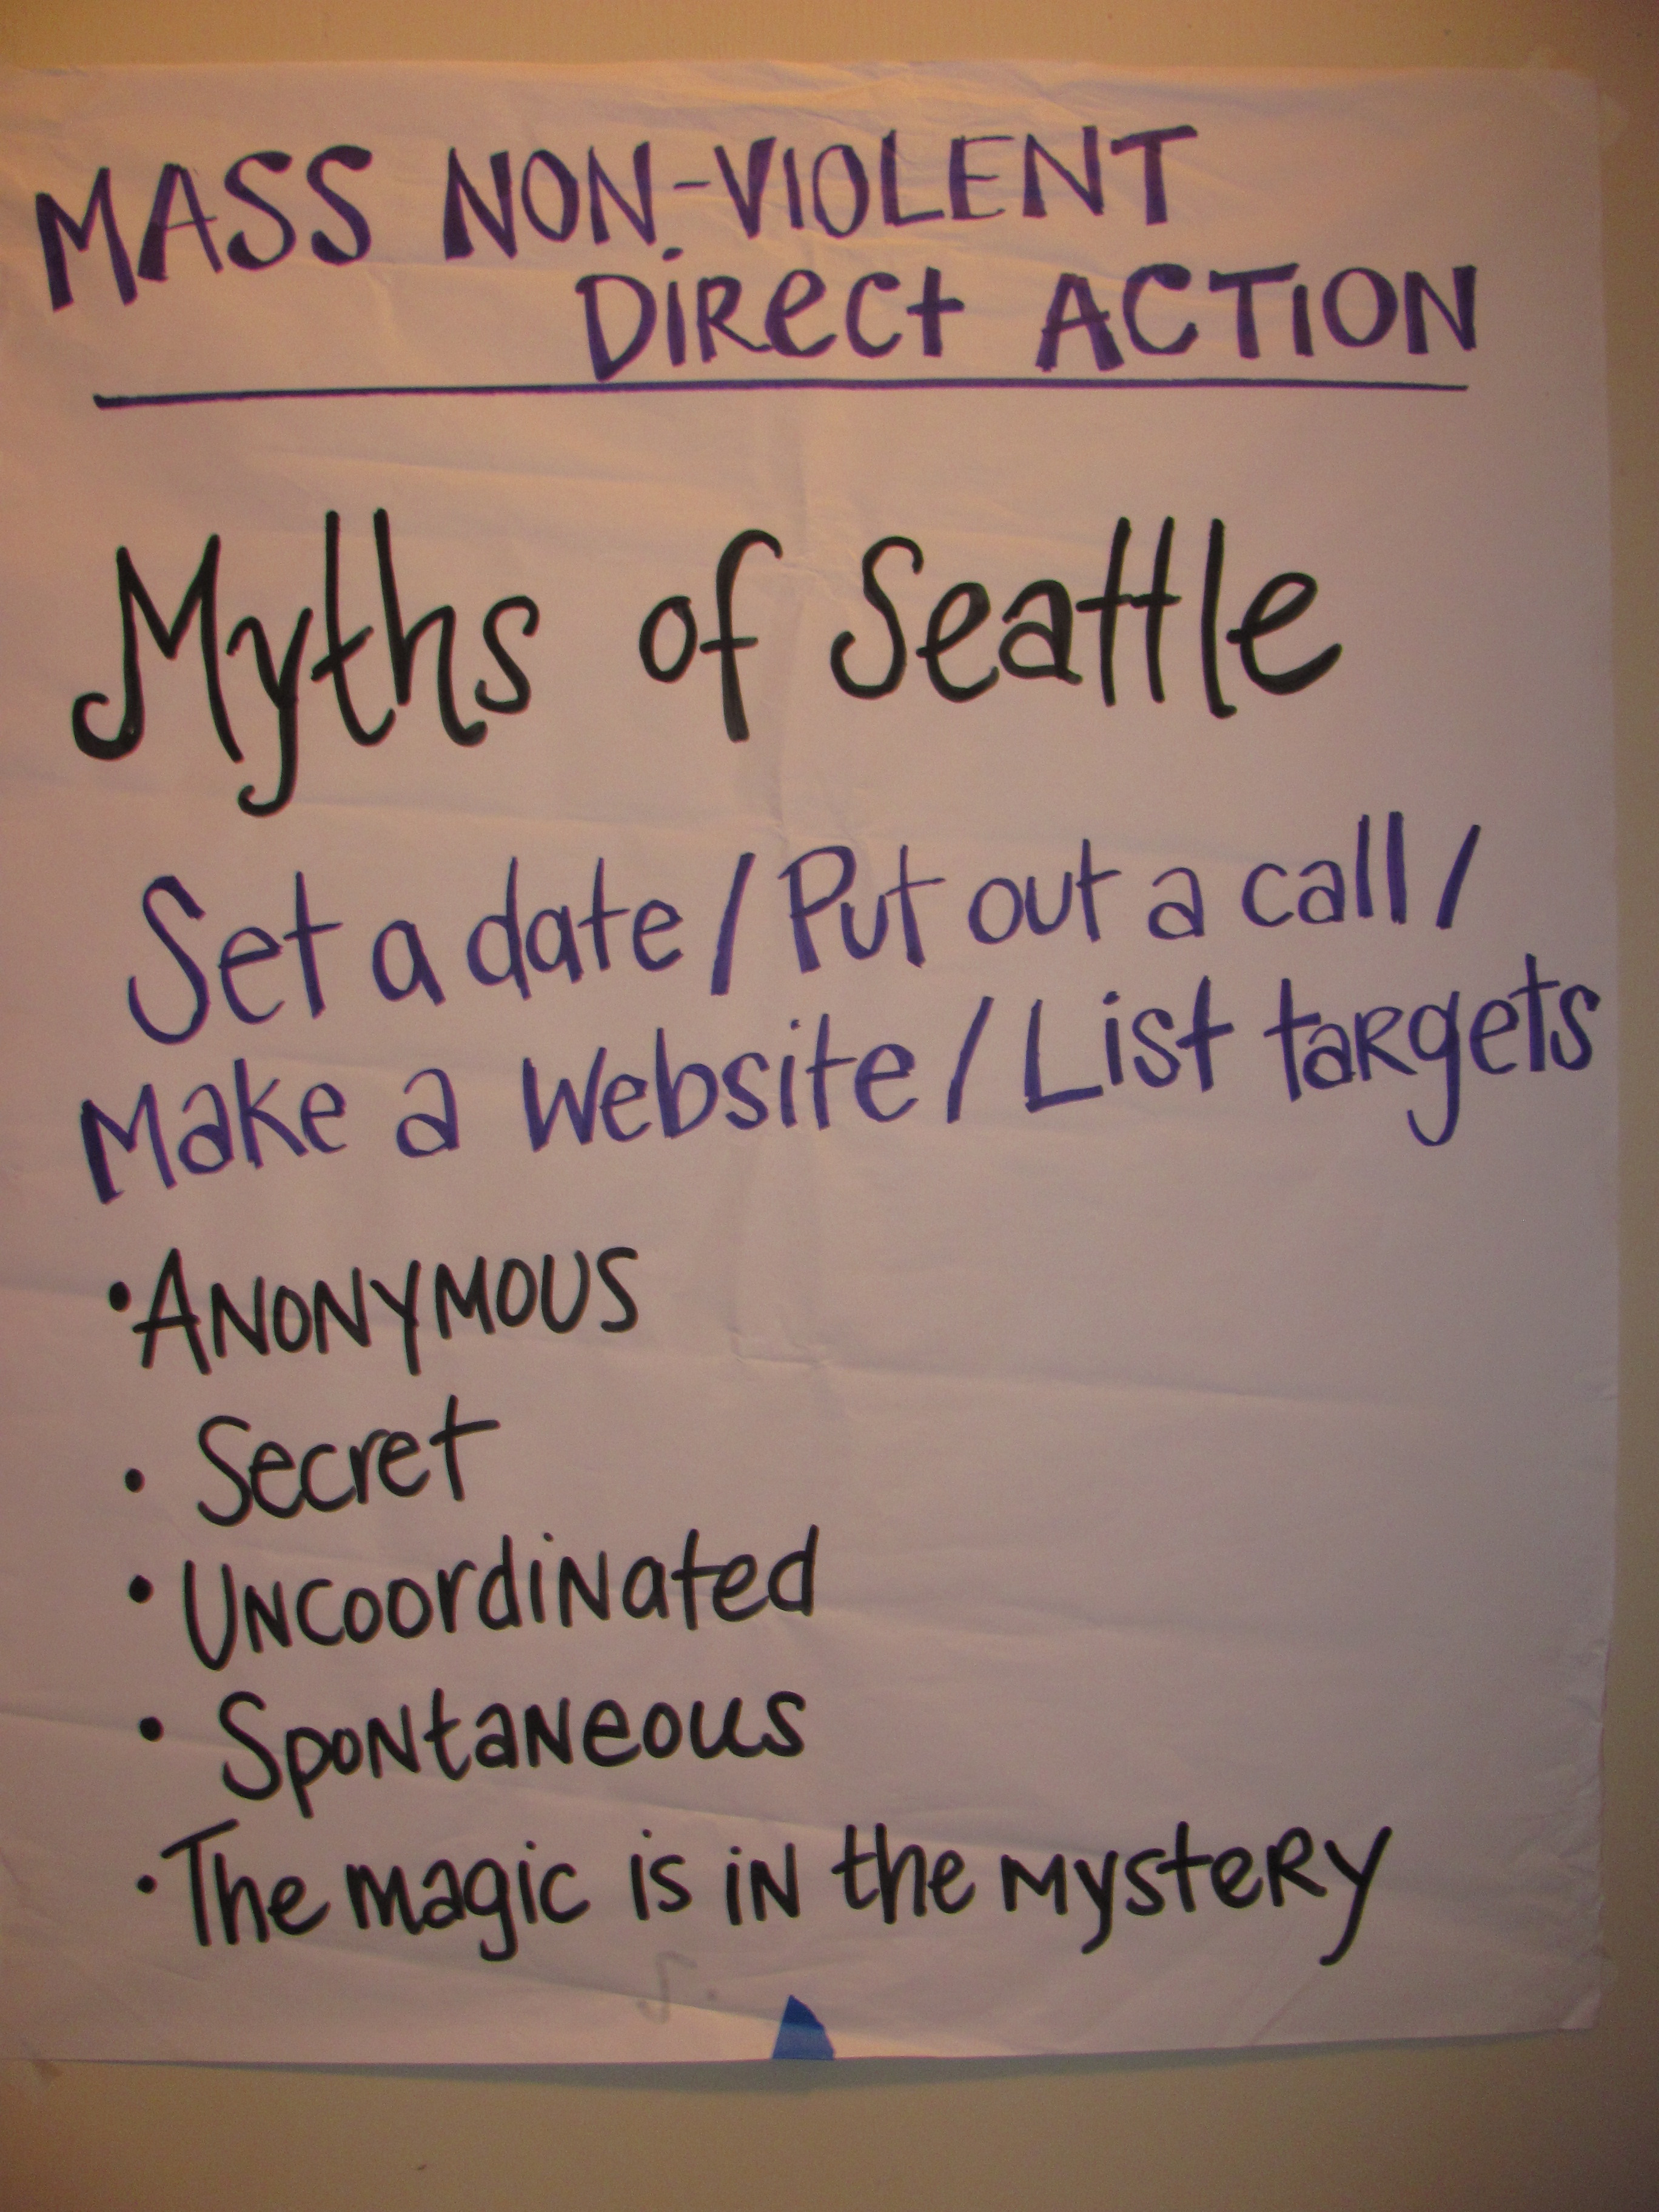 MASS NON-VIOLENT
DiRect ACTiON
Myths of Seattle
Set a date / Put out a call /
Make a Website / List taRgets
• ANONYMOUS
• Secret
• UNcoordiNated
• SpoNtaNeous
• The magic is iN the MysteRy